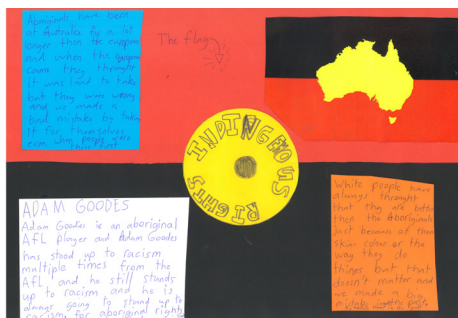 Aboriginals have been
at Australia for a lot
longer then the europeans
and when the europeans
came they throught
it was land to take
but they were wrong
and we made a
bad mistake by taking
it for themselves
even when people were
there first
The flag
INDINGENOUS
RIGHTS
ADAM GOODES
Adam Goodes is an aboriginal
AFL player and Adam Goodes
has stood up to racism
multiple times from the
AFL and he still stands
up to racism and he is
always going to stand up to
racism for aboriginal rights
White people have
always throught
that they are better
then the Aboriginals
just because of their
skin colour or the
way they do
things but that
doesn't matter and
we made a big
mistake in the past